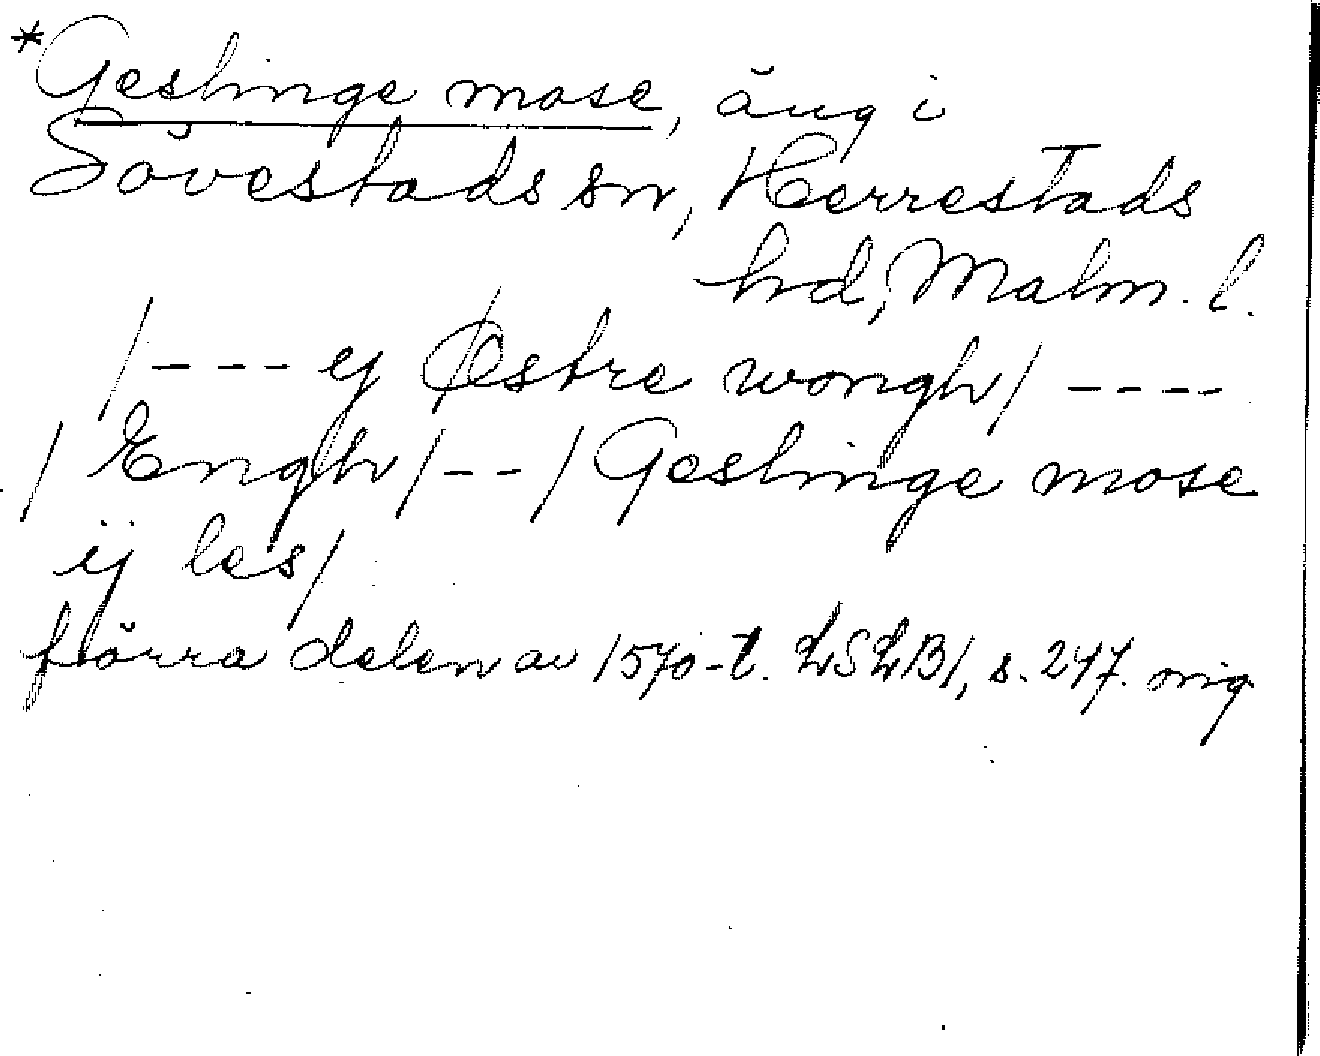 *Geslinge mose, äng i
Sövestads sn, Herrestads
hd, Malm. l.
/--- ej Østre wongh/ ----
/Engh/--/Geslinge mose
ij les/
förra delen av 1570-t. LSLB1, s. 247. orig